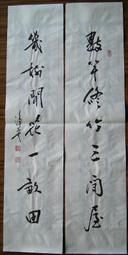 數竿修竹三間屋
幾樹閒花一畝田